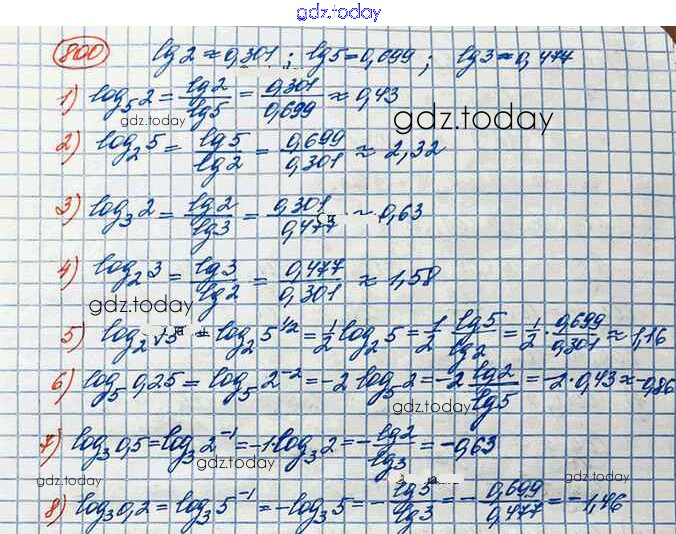 gdz.today
800 lg2≈0,301; lg5=0,699; lg3≈0,477
1) log₅2 = lg2/lg5 = 0,301/0,699 ≈ 0,43
gdz.today
gdz.today
2) log₂5 = lg5/lg2 = 0,699/0,301 ≈ 2,32
3) log₃2 = lg2/lg3 = 0,301/0,477 ~ 0,63
4) log₂3 = lg3/lg2 = 0,477/0,301 ≈ 1,58
gdz.today
5) log₂√5 = log₂5^1/2 = 1/2 log₂5 = 1/2 · lg5/lg2 = 1/2 · 0,699/0,301 ≈ 1,16
6) log₅0,25 = log₅2⁻² = -2 log₅2 = -2 lg2/lg5 = -2·0,43 ≈ -0,86
gdz.today
7) log₃0,5 = log₃2⁻¹ = -1·log₃2 = -lg2/lg3 = -0,63
gdz.today
gdz.today
gdz.today
8) log₃0,2 = log₃5⁻¹ = -log₃5 = -lg5/lg3 = -0,699/0,477 = -1,46